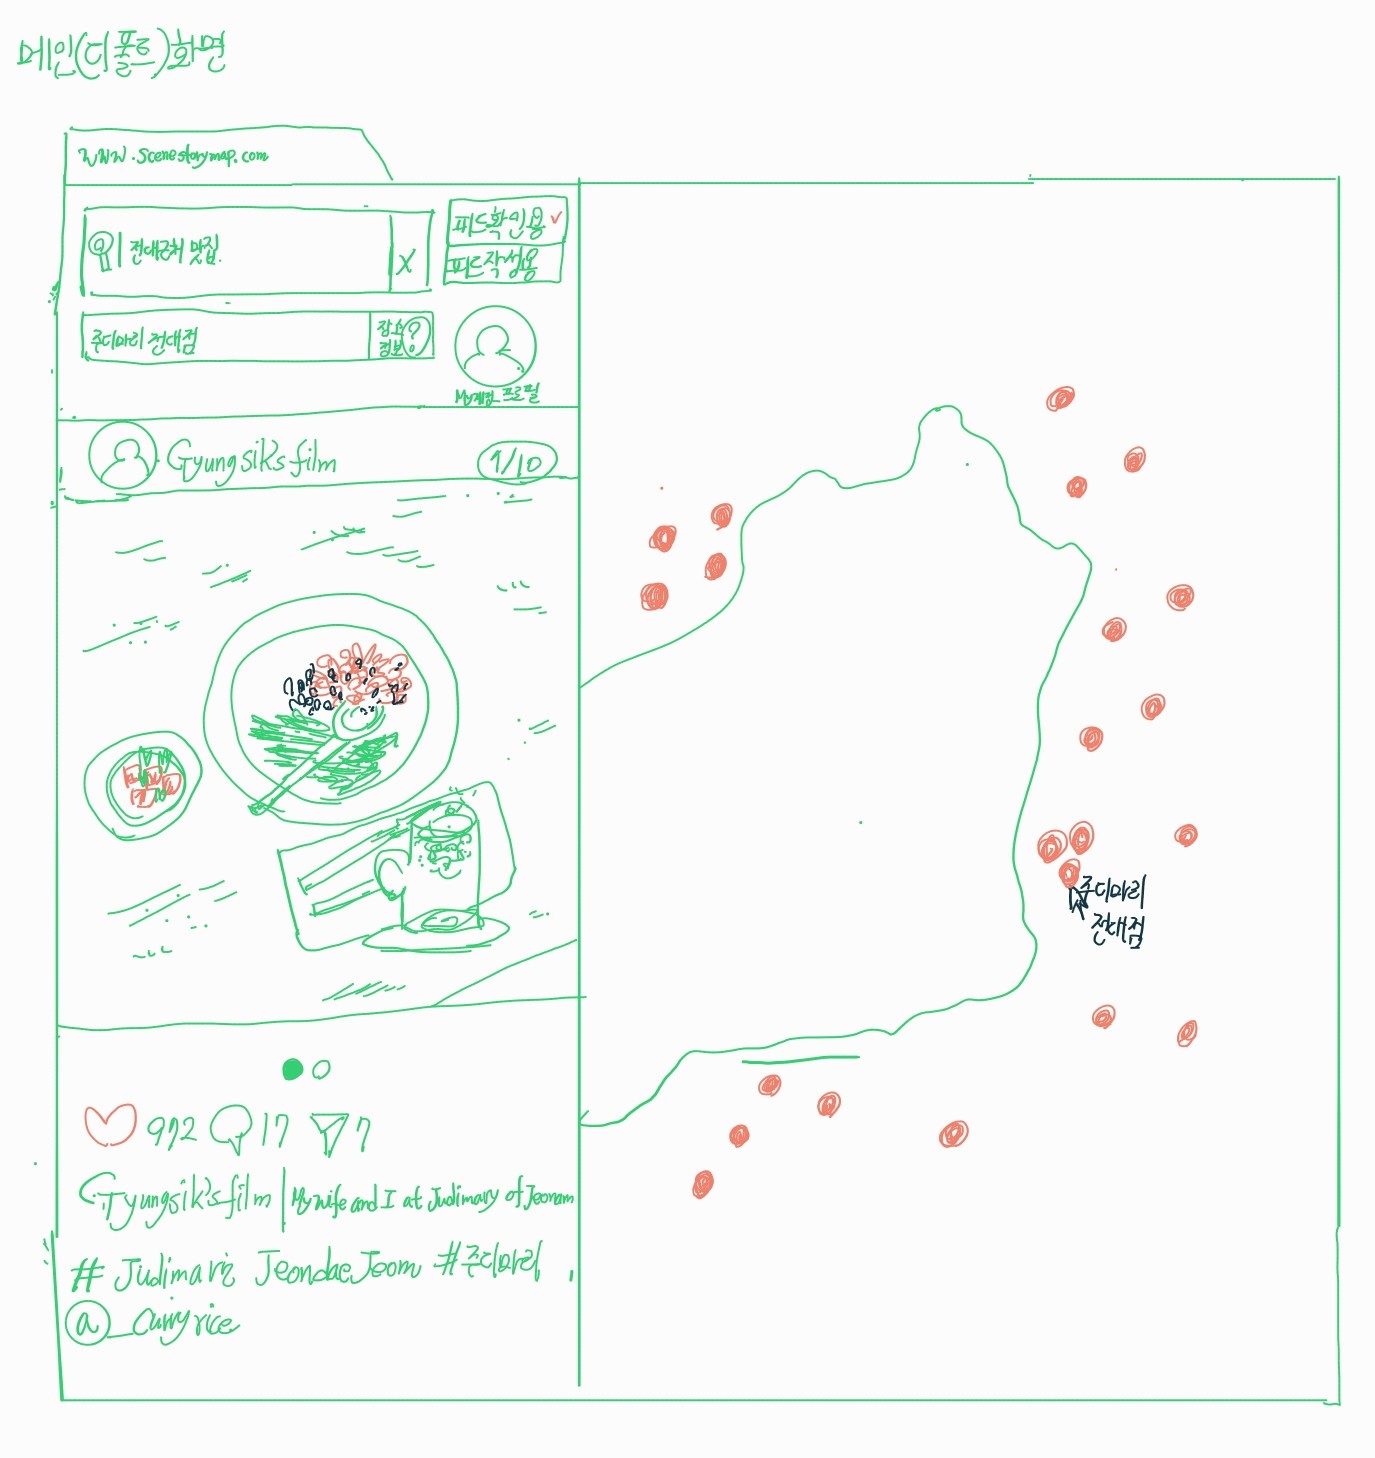 메인(디폴트)화면
www.scenestorymap.com
전대근처 맛집.
X
피드확인용 ✓
피드작성용
주디마리 전대점
장소
정보 ?
My계정 프로필
Gyungsik's film
1/10
주디마리
전대점
972 17 7
Gyungsik's film | My wife and I at Judimary of Jeonam
# Judimari JeondaeJeom #주디마리
@_Curry rice